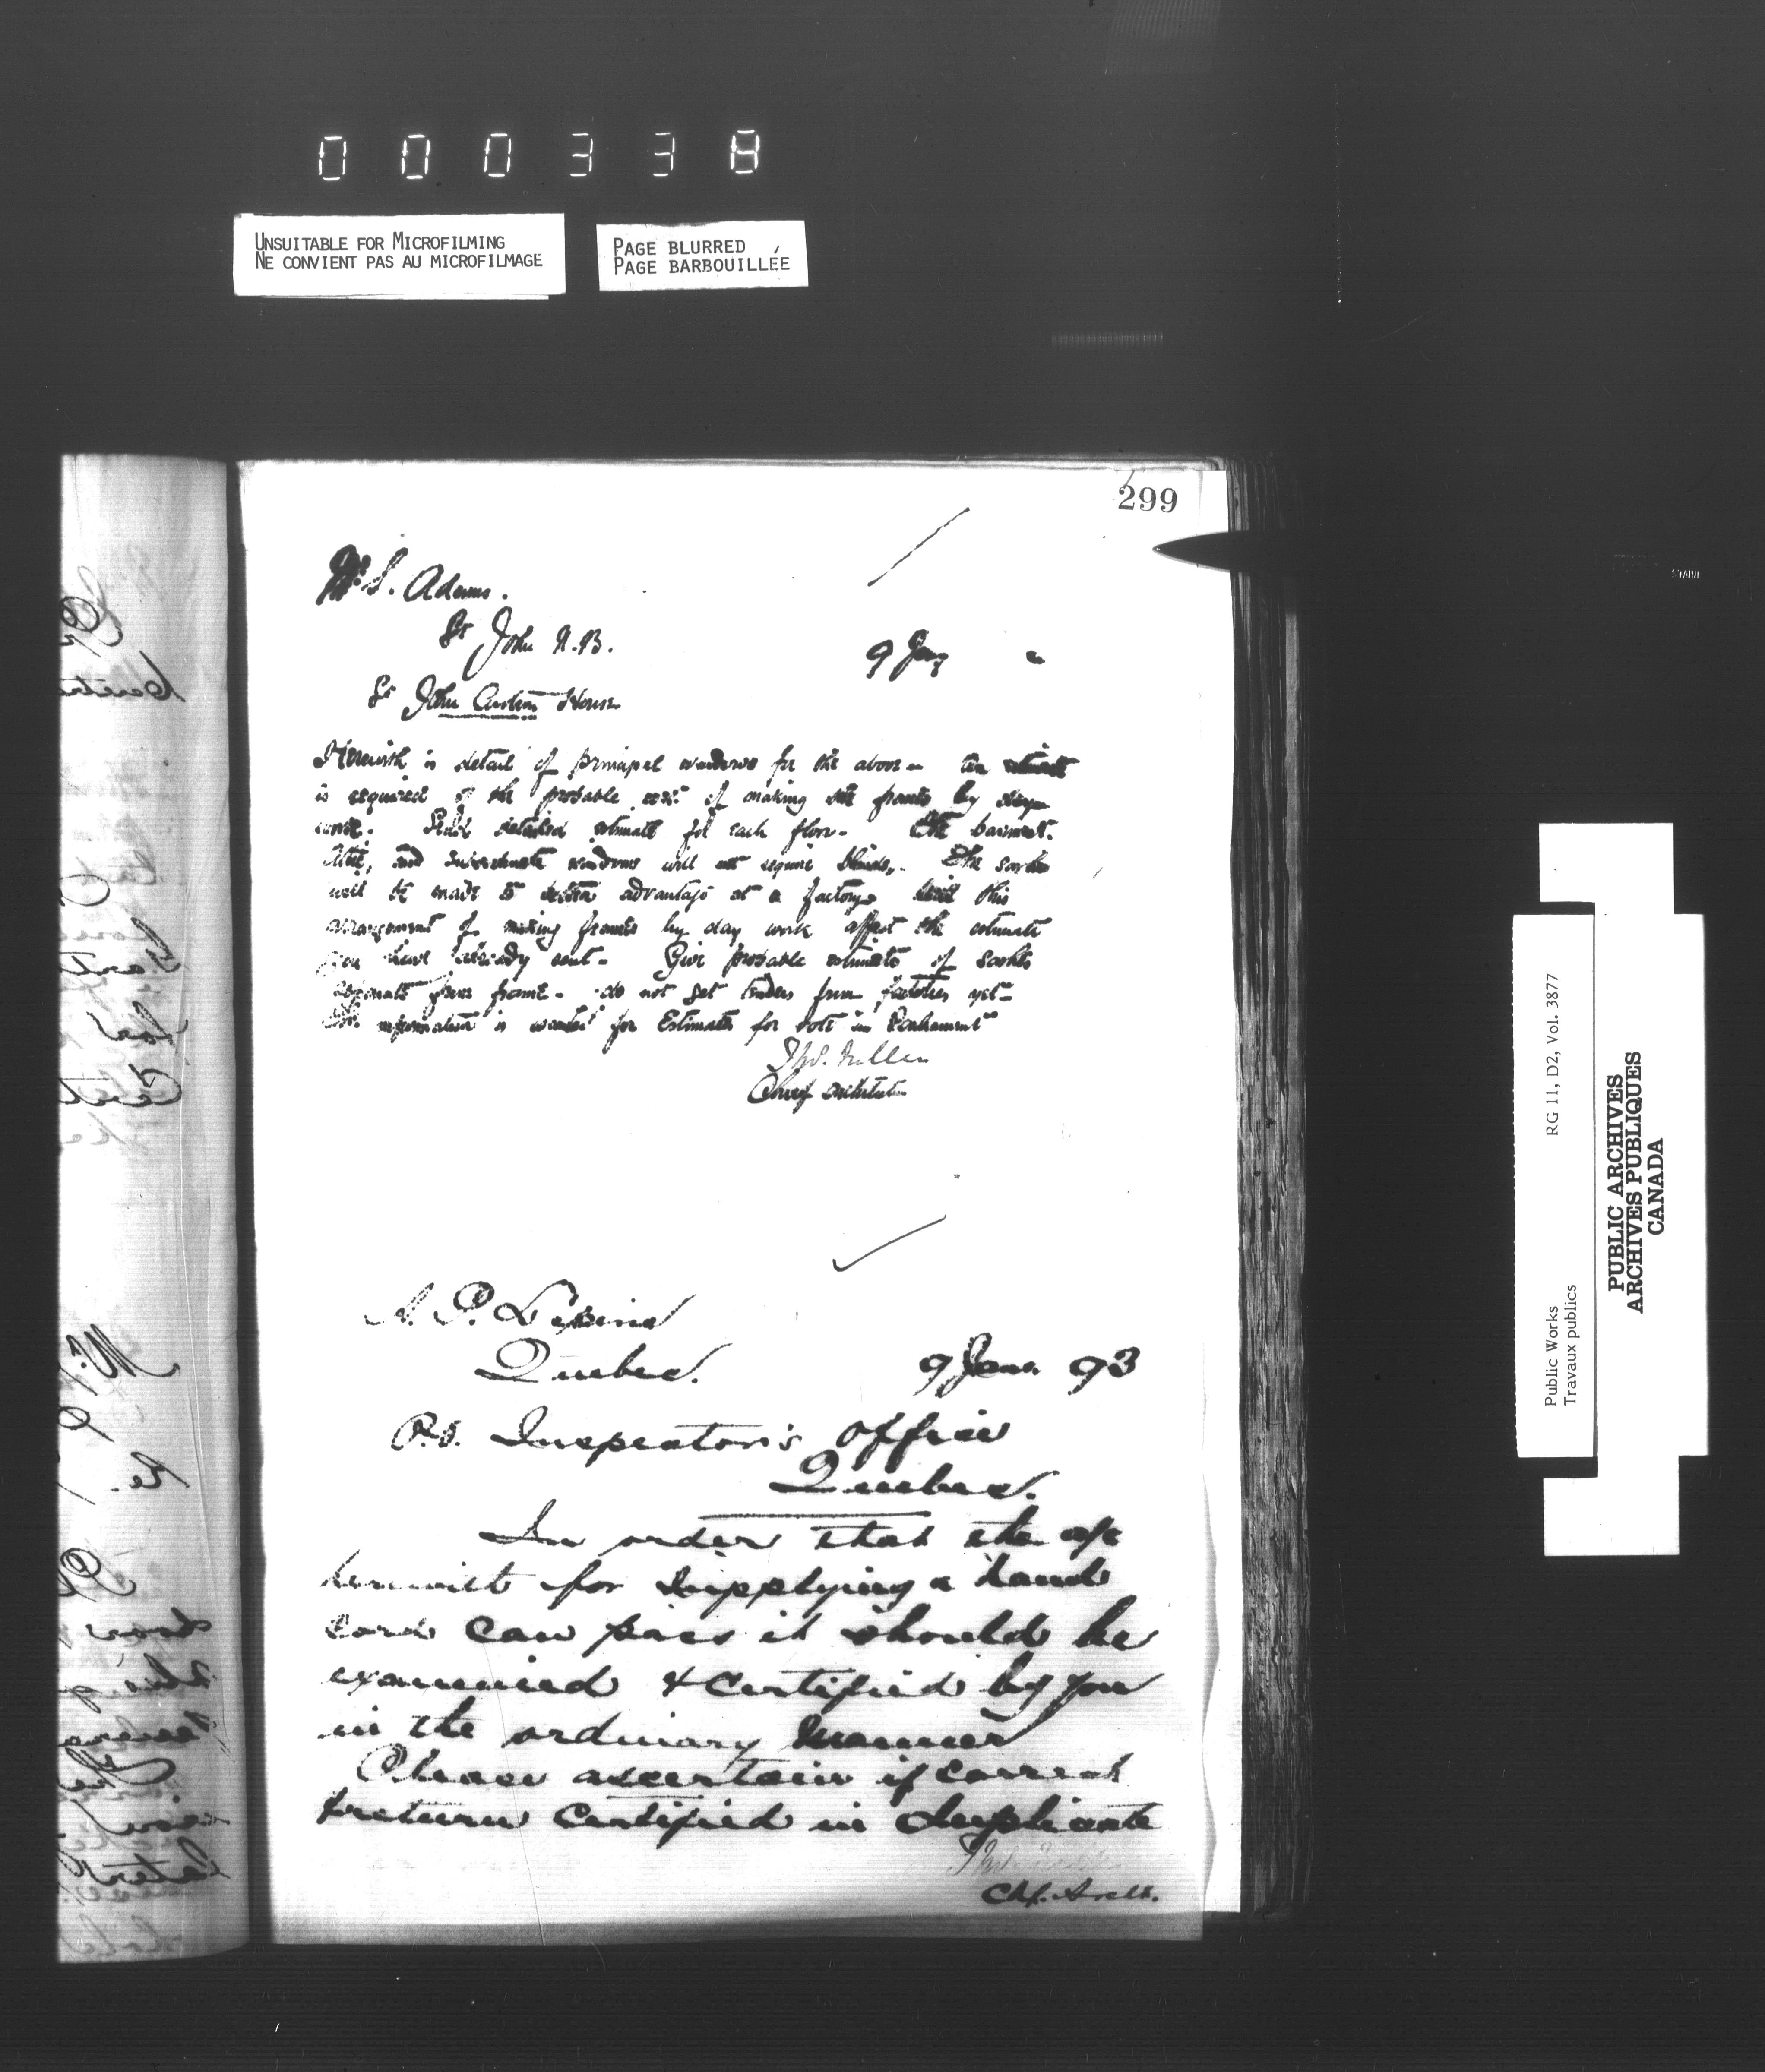 000338
UNSUITABLE FOR MICROFILMING
NE CONVIENT PAS AU MICROFILMAGE
PAGE BLURRED
PAGE BARBOUILLÉE
299
Mr S. Adams.
St John N.B.
9 Jany "
St John Custom House
Herewith is detail of principal windows for the above - An estimate
is required of the probable cost of making the frames by days
work. Send detailed estimate for each floor - The basement.
Attic, and windows will not require blinds. The sashes
will be made to better advantage at a factory. Will this
arrangement of making frames by day work affect the estimate
you have already sent - Give probable estimate of sashes
separate from frame - do not get tenders from factories yet -
information is wanted for Estimates for vote in Parliament
Thos. Fuller
Chief Architect
A. P. Lepine
Quebec.
9 Jany 93
P.O. Inspector's Office
Quebec.
In order that the a/c
herewith for supplying a
cord can pass it should be
examined & certified by you
in the ordinary manner
Please ascertain if correct
& return certified in duplicate
Chf. Archt.
RG 11, D2, Vol. 3877
Public Works
Travaux publics
PUBLIC ARCHIVES
ARCHIVES PUBLIQUES
CANADA